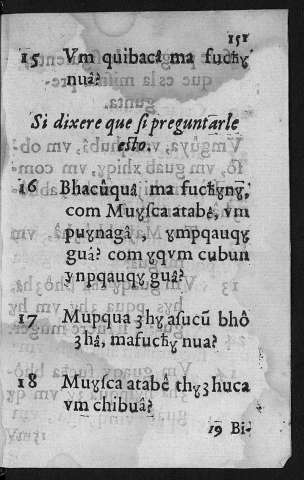 151
15 Vm quibacâ ma fucħꝩ
nuâ?
Si dixere que si preguntarle
esto.
16 Bhacûquâ ma fucħꝩnꝩ,
com Muꝩſca atabè, vm
puꝩnagâ, ꝩmpqauqꝩ
guâ? com ꝩqvm cubun
ynpqauqꝩ guâ?
17 Mupqua ȝhꝩ aſucū bhô
ȝhâ, mafucħꝩ nua?
18 Muꝩſca atabè thꝩȝhuca
vm chibuâ?
19 Bi-